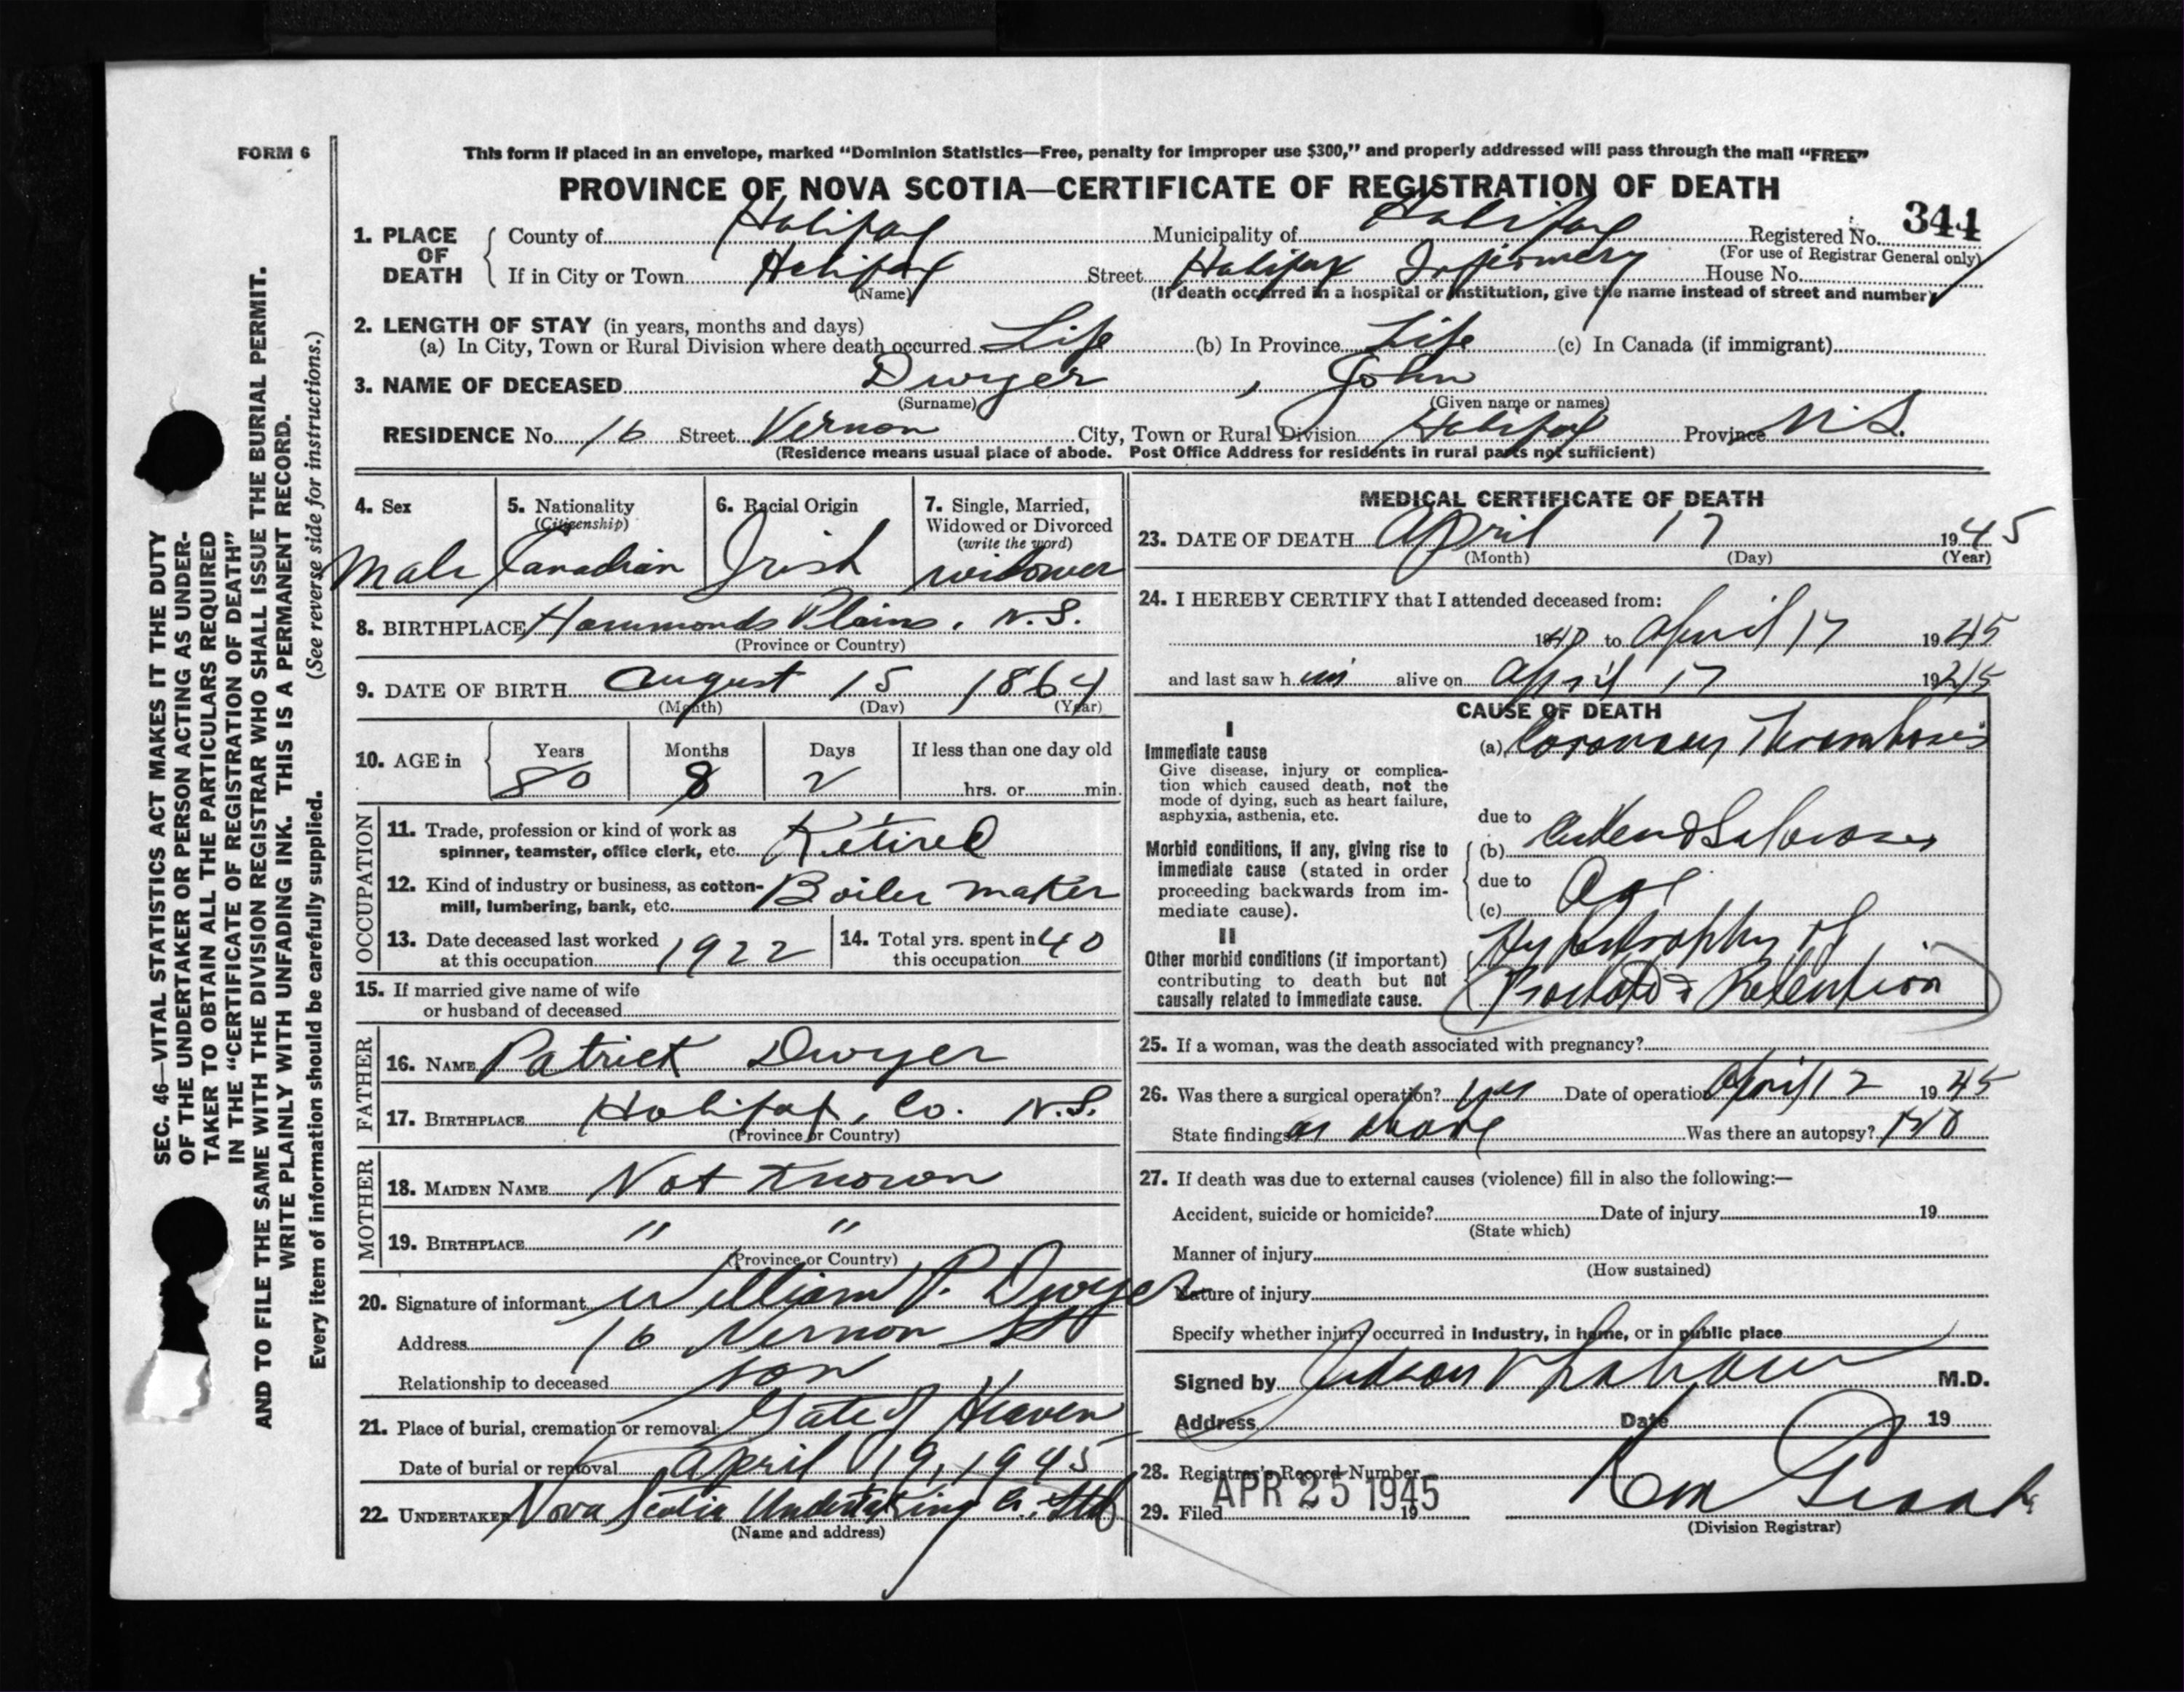 FORM 6
This form if placed in an envelope, marked "Dominion Statistics—Free, penalty for improper use $300," and properly addressed will pass through the mail "FREE"
PROVINCE OF NOVA SCOTIA—CERTIFICATE OF REGISTRATION OF DEATH
344
1. PLACE OF DEATH
County of Halifax Municipality of Halifax Registered No.
(For use of Registrar General only)
If in City or Town Halifax Street Halifax Infirmery House No.
(Name) (If death occurred in a hospital or institution, give the name instead of street and number)
2. LENGTH OF STAY (in years, months and days)
(a) In City, Town or Rural Division where death occurred Life (b) In Province Life (c) In Canada (if immigrant)
3. NAME OF DECEASED Dwyer, John
(Surname) (Given name or names)
RESIDENCE No. 16 Street Vernon City, Town or Rural Division Halifax Province N.S.
(Residence means usual place of abode. Post Office Address for residents in rural parts not sufficient)
4. Sex
Male
5. Nationality
(Citizenship)
Canadian
6. Racial Origin
Irish
7. Single, Married,
Widowed or Divorced
(write the word)
widower
8. BIRTHPLACE Hammonds Plains, N.S.
(Province or Country)
9. DATE OF BIRTH August 15 1864
(Month) (Day) (Year)
10. AGE in
Years Months Days If less than one day old
80 8 2 hrs. or min.
OCCUPATION
11. Trade, profession or kind of work as
spinner, teamster, office clerk, etc. Retired
12. Kind of industry or business, as cotton-
mill, lumbering, bank, etc. Boiler maker
13. Date deceased last worked
at this occupation 1922
14. Total yrs. spent in
this occupation 40
15. If married give name of wife
or husband of deceased
FATHER
16. NAME Patrick Dwyer
17. BIRTHPLACE Halifax, Co. N.S.
(Province or Country)
MOTHER
18. MAIDEN NAME Not Known
19. BIRTHPLACE " "
(Province or Country)
20. Signature of informant William P. Dwyer
Address 16 Vernon St
Relationship to deceased son
21. Place of burial, cremation or removal Gate of Heaven
Date of burial or removal April 19, 1945
22. UNDERTAKER Nova Scotia Undertaking Co., Ltd
(Name and address)
MEDICAL CERTIFICATE OF DEATH
23. DATE OF DEATH April 17 1945
(Month) (Day) (Year)
24. I HEREBY CERTIFY that I attended deceased from:
1940 to April 17 1945
and last saw him alive on April 17 1945
CAUSE OF DEATH
I
Immediate cause
Give disease, injury or complica-
tion which caused death, not the
mode of dying, such as heart failure,
asphyxia, asthenia, etc.
(a) Coronary Thrombosis
due to
Morbid conditions, if any, giving rise to
immediate cause (stated in order
proceeding backwards from im-
mediate cause).
(b)
due to
(c) Age
II
Other morbid conditions (if important)
contributing to death but not
causally related to immediate cause.
Hypertrophy of
Prostate & Retention
25. If a woman, was the death associated with pregnancy?
26. Was there a surgical operation? yes Date of operation April 12 1945
State findings as above Was there an autopsy? No
27. If death was due to external causes (violence) fill in also the following:—
Accident, suicide or homicide? Date of injury 19
(State which)
Manner of injury
(How sustained)
Nature of injury
Specify whether injury occurred in Industry, in home, or in public place
Signed by Judson M.D.
Address Date 19
28. Registrar's Record Number
29. Filed APR 25 1945 19
(Division Registrar)
SEC. 46—VITAL STATISTICS ACT MAKES IT THE DUTY
OF THE UNDERTAKER OR PERSON ACTING AS UNDER-
TAKER TO OBTAIN ALL THE PARTICULARS REQUIRED
IN THE "CERTIFICATE OF REGISTRATION OF DEATH"
AND TO FILE THE SAME WITH THE DIVISION REGISTRAR WHO SHALL ISSUE THE BURIAL PERMIT.
WRITE PLAINLY WITH UNFADING INK. THIS IS A PERMANENT RECORD.
Every item of information should be carefully supplied. (See reverse side for instructions.)